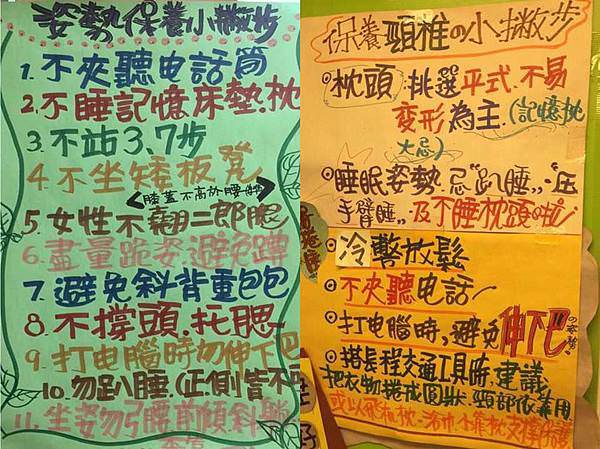 姿勢保養小撇步
1. 不夾聽电話筒
2. 不睡記憶床墊.枕
3. 不站3.7步
4. 不坐矮板凳
<膝蓋不高於腰
5. 女性不翹二郎腿
6. 盡量跪姿避免蹲
7. 避免斜背重包包
8. 不撐頭.托腮
9. 打电腦時勿伸下巴
10. 勿趴睡.(正側皆不
11. 坐姿勿弓腰前傾斜
保養頸椎の小撇步
枕頭 挑選平式.不易
變形為主.(記憶枕
大忌)
睡眠姿勢.忌"趴睡"."压
手臂睡".及不睡枕頭啦
冷敷放鬆
不夾聽电話
打电腦時,避免伸下巴の
搭長程交通工具時,建議
把衣物捲成圓狀.頸部依靠用
或以飛机枕.浴巾.小靠枕支撐